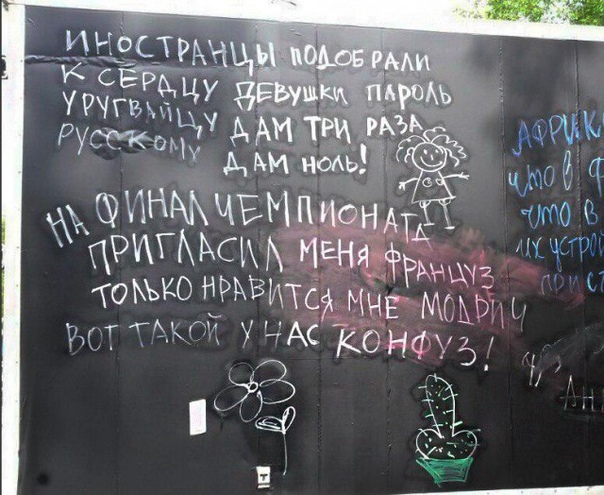 ИНОСТРАНЦЫ ПОДОБРАЛИ
К СЕРДЦУ ДЕВУШКИ ПАРОЛЬ
УРУГВАЙЦУ ДАМ ТРИ РАЗА
РУССКОМУ ДАМ НОЛЬ!
НА ФИНАЛ ЧЕМПИОНАТА
ПРИГЛАСИЛ МЕНЯ ФРАНЦУЗ
ТОЛЬКО НРАВИТСЯ МНЕ МОДРИЧ
ВОТ ТАКОЙ У НАС КОНФУЗ!
что в
что в
их устрой